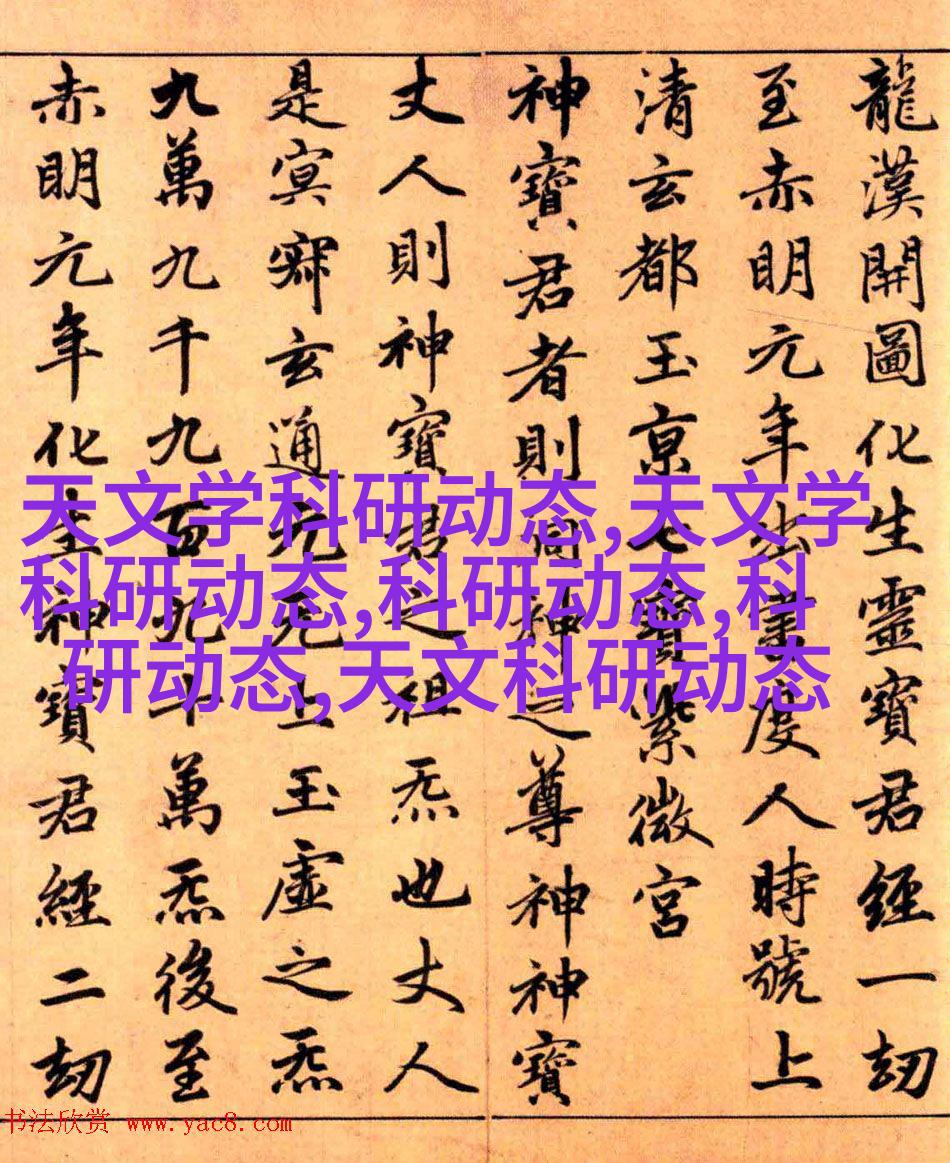 龍漢開圖化生靈寶君經一劫
至赤明元年出書度人時號上
清玄都玉京七寶紫微宮
神寶君者則洞神之尊神神寶
丈人則神寶君之祖炁也丈人
是冥寂玄通元无上玉虛之炁
九萬九千九百九十萬炁後至
赤明元年化生神寶君經二劫
天文学科研动态,天文学
科研动态,科研动态,科
研动态,天文科研动态
书法欣赏 www.yac8.com